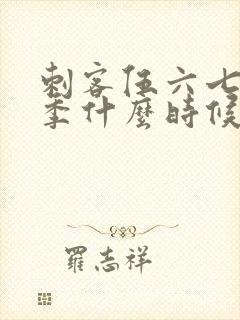 刺客伍六七
季什麼時候
羅志祥